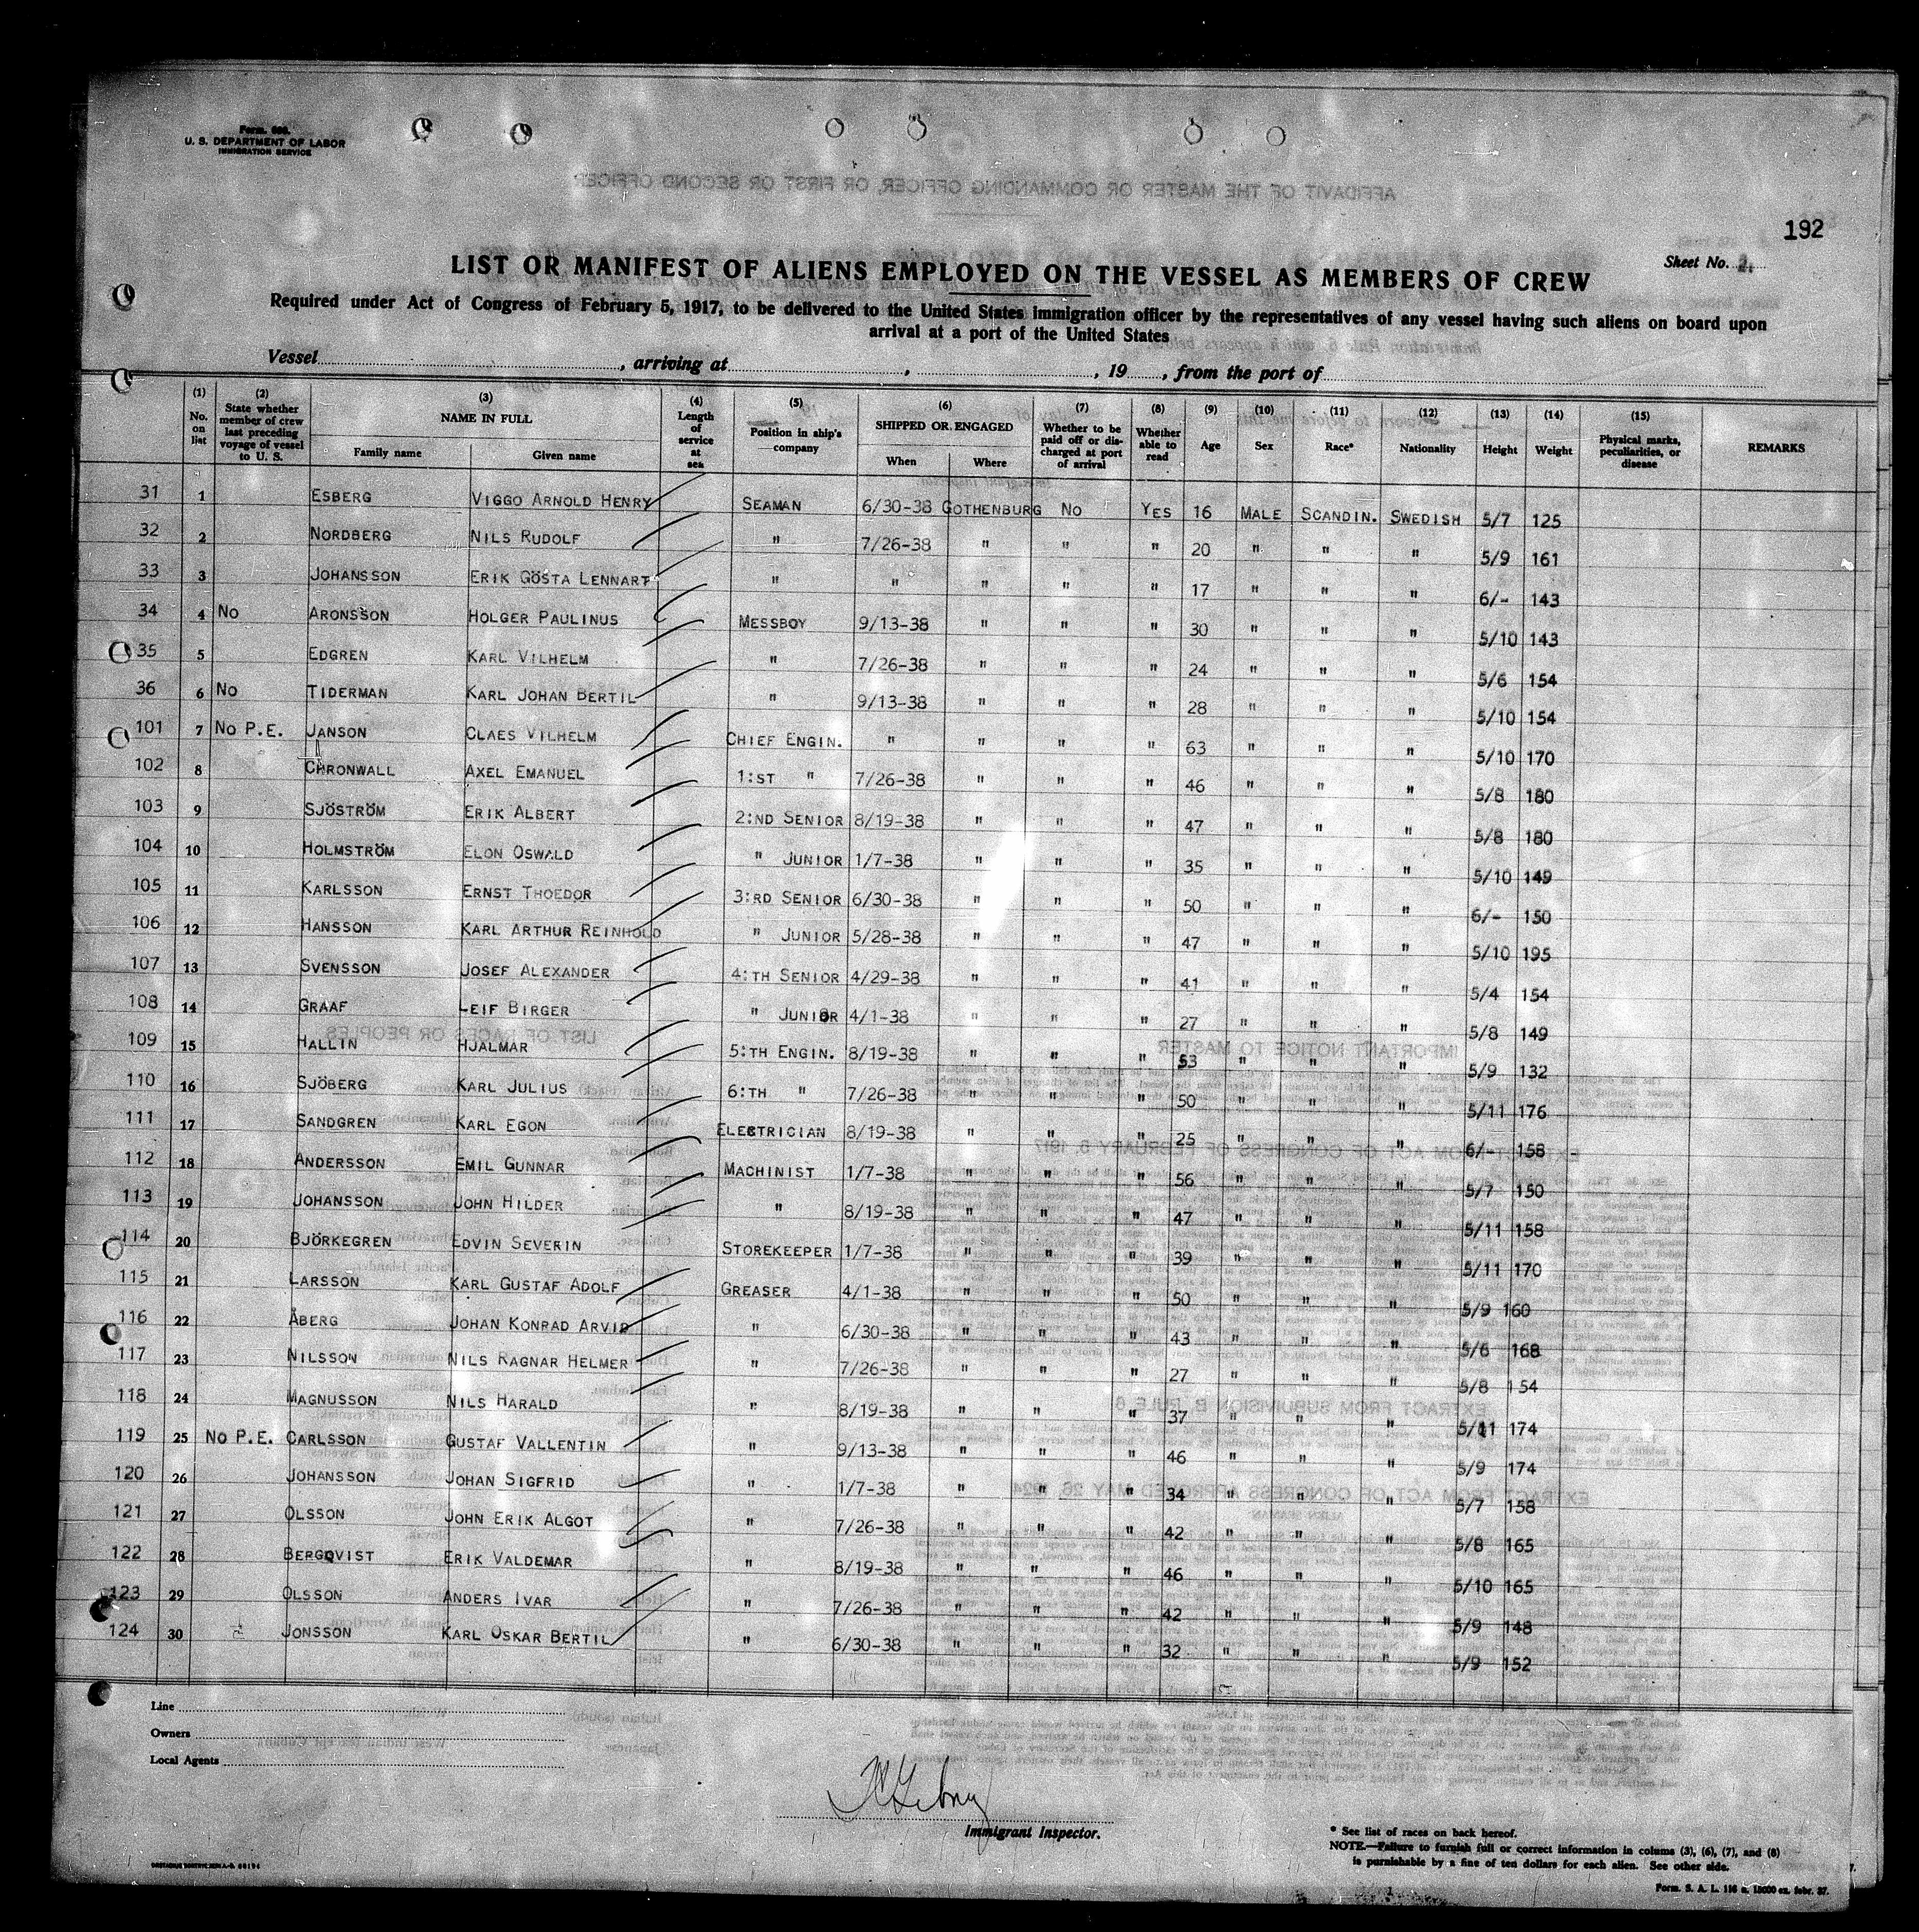 Form. 680.
U. S. DEPARTMENT OF LABOR
IMMIGRATION SERVICE
192
Sheet No. 2.
LIST OR MANIFEST OF ALIENS EMPLOYED ON THE VESSEL AS MEMBERS OF CREW
Required under Act of Congress of February 5, 1917, to be delivered to the United States immigration officer by the representatives of any vessel having such aliens on board upon
arrival at a port of the United States
Vessel , arriving at , , 19 , from the port of
(1) No. on list (2) State whether member of crew last preceding voyage of vessel to U. S. (3) NAME IN FULL Family name Given name (4) Length of service at sea (5) Position in ship's company (6) SHIPPED OR ENGAGED When Where (7) Whether to be paid off or discharged at port of arrival (8) Whether able to read (9) Age (10) Sex (11) Race* (12) Nationality (13) Height (14) Weight (15) Physical marks, peculiarities, or disease REMARKS
31 1 ESBERG VIGGO ARNOLD HENRY SEAMAN 6/30-38 GOTHENBURG NO YES 16 MALE SCANDIN. SWEDISH 5/7 125
32 2 NORDBERG NILS RUDOLF " 7/26-38 " " " 20 " " " 5/9 161
33 3 JOHANSSON ERIK GÖSTA LENNART " " " " " 17 " " " 6/- 143
34 4 NO ARONSSON HOLGER PAULINUS MESSBOY 9/13-38 " " " 30 " " " 5/10 143
35 5 EDGREN KARL VILHELM " 7/26-38 " " " 24 " " " 5/6 154
36 6 NO TIDERMAN KARL JOHAN BERTIL " 9/13-38 " " " 28 " " " 5/10 154
101 7 NO P.E. JANSON CLAES VILHELM CHIEF ENGIN. " " " " 63 " " " 5/10 170
102 8 CHRONWALL AXEL EMANUEL 1:ST " 7/26-38 " " " 46 " " " 5/8 180
103 9 SJÖSTRÖM ERIK ALBERT 2:ND SENIOR 8/19-38 " " " 47 " " " 5/8 180
104 10 HOLMSTRÖM ELON OSWALD " JUNIOR 1/7-38 " " " 35 " " " 5/10 149
105 11 KARLSSON ERNST THOEDOR 3:RD SENIOR 6/30-38 " " " 50 " " " 6/- 150
106 12 HANSSON KARL ARTHUR REINHOLD " JUNIOR 5/28-38 " " " 47 " " " 5/10 195
107 13 SVENSSON JOSEF ALEXANDER 4:TH SENIOR 4/29-38 " " " 41 " " " 5/4 154
108 14 GRAAF LEIF BIRGER " JUNIOR 4/1-38 " " " 27 " " " 5/8 149
109 15 HALLIN HJALMAR 5:TH ENGIN. 8/19-38 " " " 53 " " " 5/9 132
110 16 SJÖBERG KARL JULIUS 6:TH " 7/26-38 " " " 50 " " " 5/11 176
111 17 SANDGREN KARL EGON ELECTRICIAN 8/19-38 " " " 25 " " " 6/- 158
112 18 ANDERSSON EMIL GUNNAR MACHINIST 1/7-38 " " " 56 " " " 5/7 150
113 19 JOHANSSON JOHN HILDER " 8/19-38 " " " 47 " " " 5/11 158
114 20 BJÖRKEGREN EDVIN SEVERIN STOREKEEPER 1/7-38 " " " 39 " " " 5/11 170
115 21 LARSSON KARL GUSTAF ADOLF GREASER 4/1-38 " " " 50 " " " 5/9 160
116 22 ÅBERG JOHAN KONRAD ARVID " 6/30-38 " " " 43 " " " 5/6 168
117 23 NILSSON NILS RAGNAR HELMER " 7/26-38 " " " 27 " " " 5/8 154
118 24 MAGNUSSON NILS HARALD " 8/19-38 " " " 37 " " " 5/11 174
119 25 NO P.E. CARLSSON GUSTAF VALLENTIN " 9/13-38 " " " 46 " " " 5/9 174
120 26 JOHANSSON JOHAN SIGFRID " 1/7-38 " " " 34 " " " 5/7 158
121 27 OLSSON JOHN ERIK ALGOT " 7/26-38 " " " 42 " " " 5/8 165
122 28 BERGQVIST ERIK VALDEMAR " 8/19-38 " " " 46 " " " 5/10 165
123 29 OLSSON ANDERS IVAR " 7/26-38 " " " 42 " " " 5/9 148
124 30 JONSSON KARL OSKAR BERTIL " 6/30-38 " " " 32 " " " 5/9 152
Line
Owners
Local Agents
Immigrant Inspector.
* See list of races on back hereof.
NOTE.—Failure to furnish full or correct information in colums (3), (6), (7), and (8)
is punishable by a fine of ten dollars for each alien. See other side.
Form. S. A. L. 116 a. 15000 ex. febr. 37.